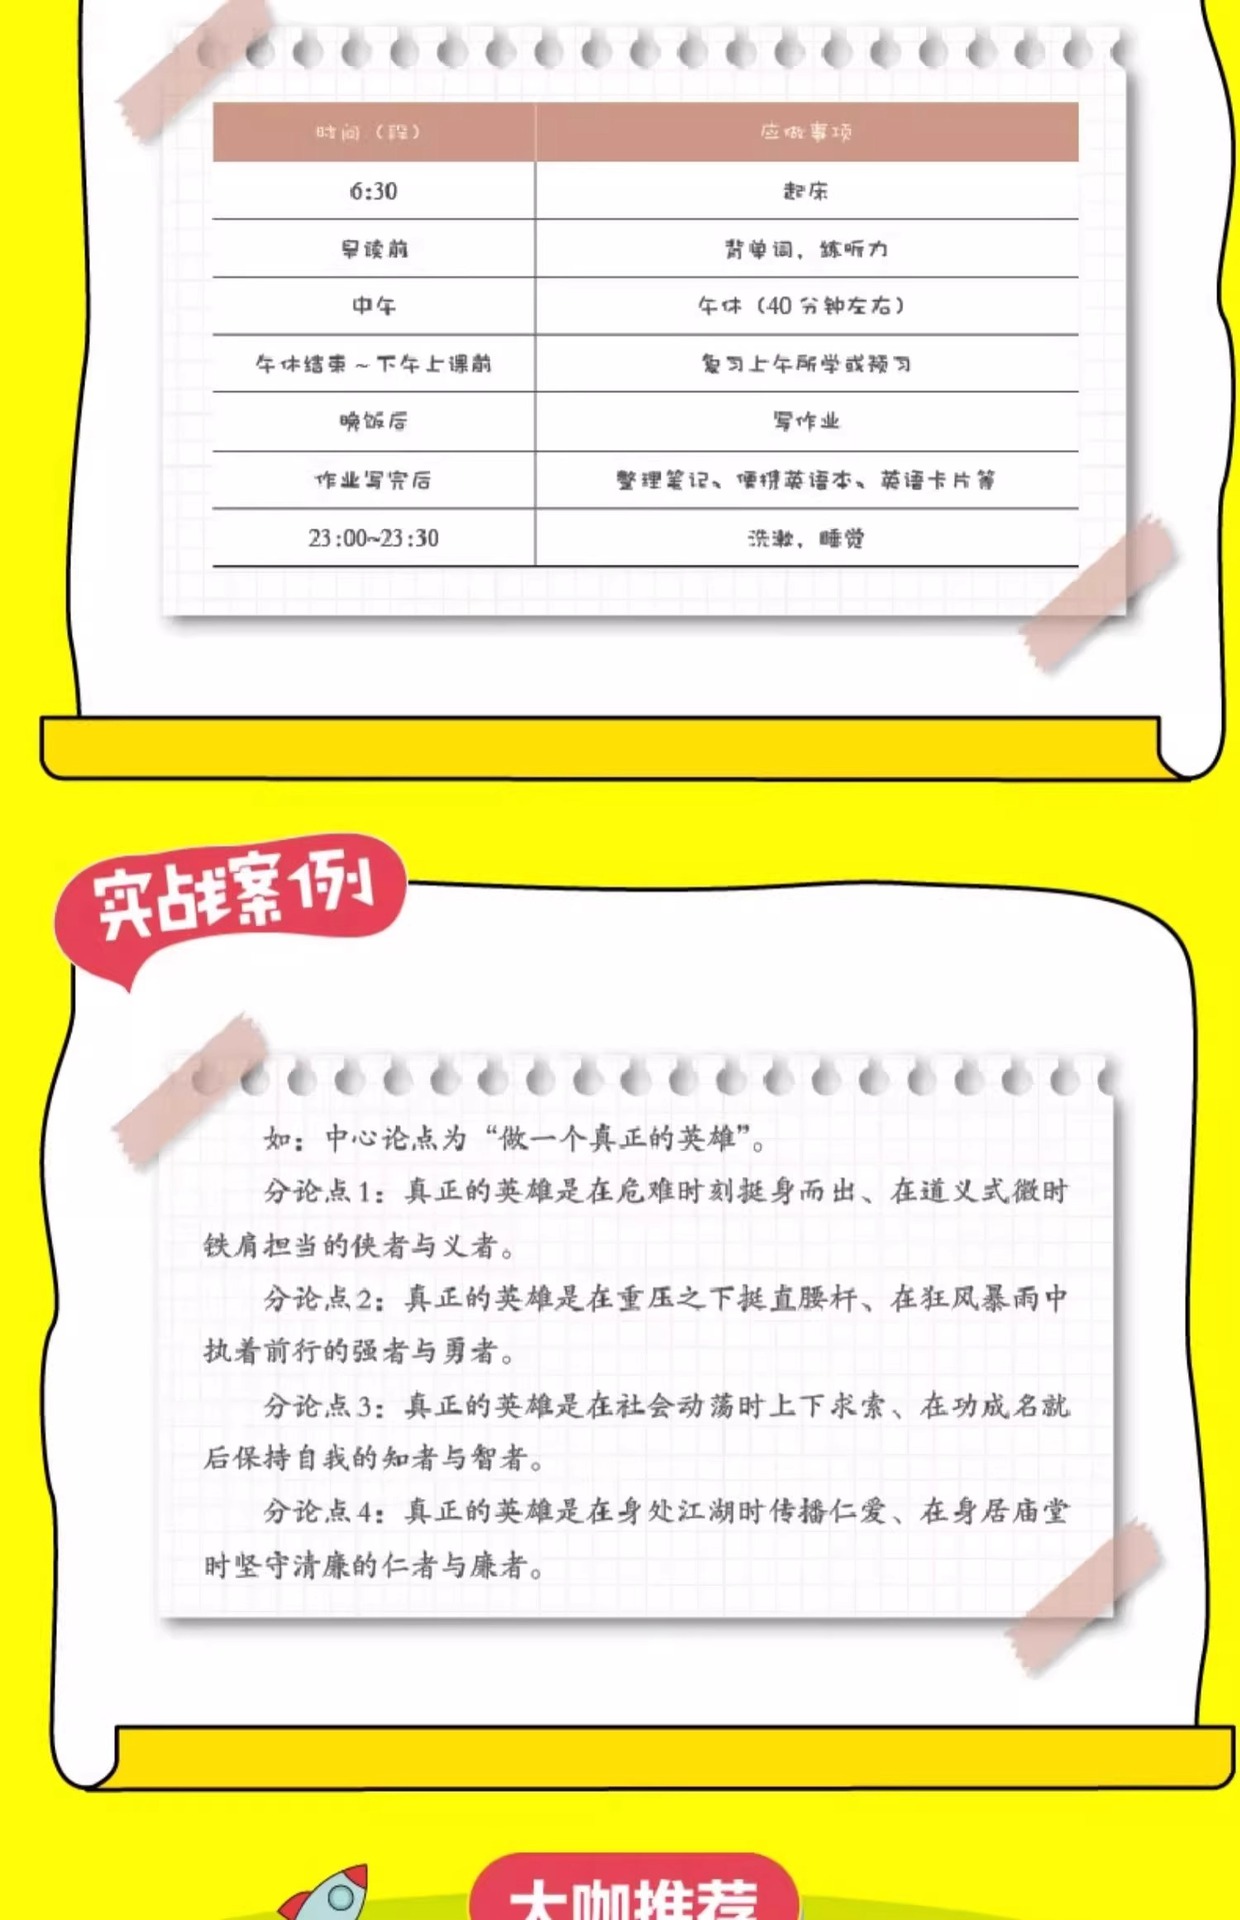 时间（段） 应做事项
6:30 起床
早读前 背单词，练听力
中午 午休（40 分钟左右）
午休结束 ~ 下午上课前 复习上午所学或预习
晚饭后 写作业
作业写完后 整理笔记、便携英语本、英语卡片等
23:00~23:30 洗漱，睡觉
实战案例
如：中心论点为“做一个真正的英雄”。
分论点 1：真正的英雄是在危难时刻挺身而出、在道义式微时
铁肩担当的侠者与义者。
分论点 2：真正的英雄是在重压之下挺直腰杆、在狂风暴雨中
执着前行的强者与勇者。
分论点 3：真正的英雄是在社会动荡时上下求索、在功成名就
后保持自我的知者与智者。
分论点 4：真正的英雄是在身处江湖时传播仁爱、在身居庙堂
时坚守清廉的仁者与廉者。
大咖推荐